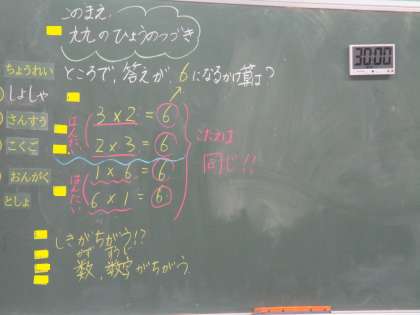 このまえ、
九九のひょうのつづき
30:00
ところで、答えが、6になるかけ算は?
ちょうれい
しょしゃ
さんすう
こくご
おんがく
としょ
はんたい
3×2=6
2×3=6
はんたい
1×6=6
6×1=6
こたえは
同じ!!
しきがちがう!?
かず すうじ
数、数字がちがう。